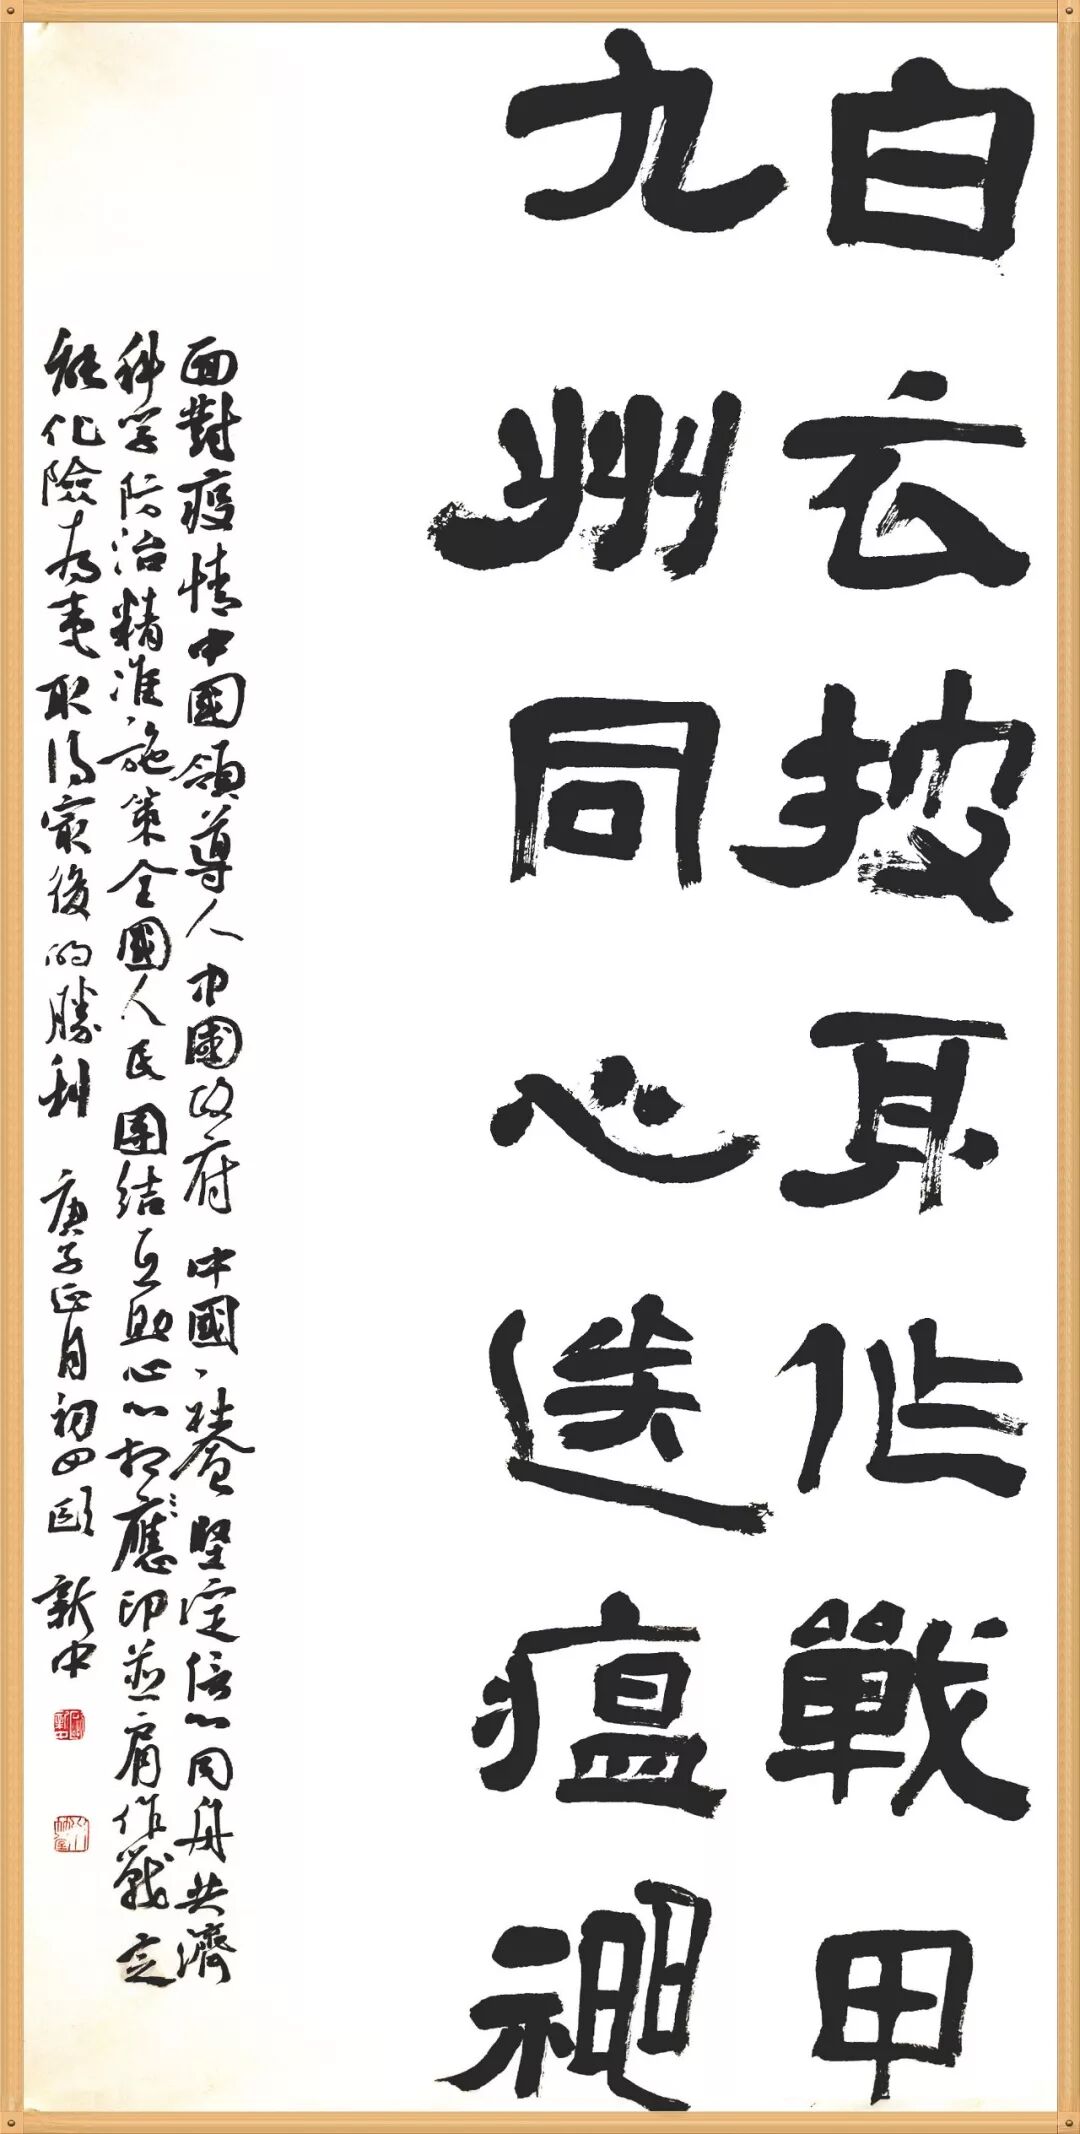 白衣披身作戰甲
九州同心送瘟神
面對疫情中國領導人中國政府 中國堅定信心同舟共濟
科學防治精准施策全國人民團結互助心心相應印並肩作戰定
能化險為夷取得最後的勝利 庚子正月初四 新中